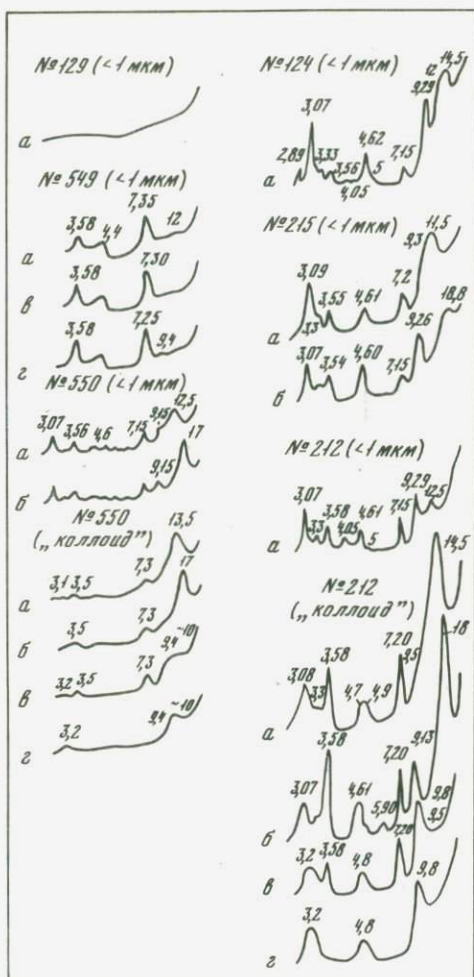 №129 (<1 мкм)
а
№549 (<1 мкм)
3,58 4,4 7,35 12
а
3,58 7,30
в
3,58 7,25 9,4
г
№550 (<1 мкм)
3,07 3,56 4,6 7,15 9,15 12,5
а
9,15 17
б
№550
(„коллоид”)
3,1 3,5 7,3 13,5
а
3,5 7,3 17
б
3,2 3,5 7,3 9,4 ~10
в
3,2 9,4 ~10
г
№124 (<1 мкм)
2,89 3,07 3,33 3,56 4,05 4,62 5 7,15 9,29 12 14,5
а
№215 (<1 мкм)
3,09 3,3 3,55 4,61 7,2 9,3 11,5
а
3,07 3,54 4,60 7,15 9,26 18,8
б
№212 (<1 мкм)
3,07 3,3 3,58 4,05 4,61 5 7,15 9,29 12,5
а
№212
(„коллоид”)
3,08 3,3 3,58 4,7 4,9 7,20 9,5 14,5
а
3,07 3,58 4,61 5,90 7,20 9,13 18
б
3,2 3,58 4,8 7,20 9,5 9,8
в
3,2 4,8 9,8
г